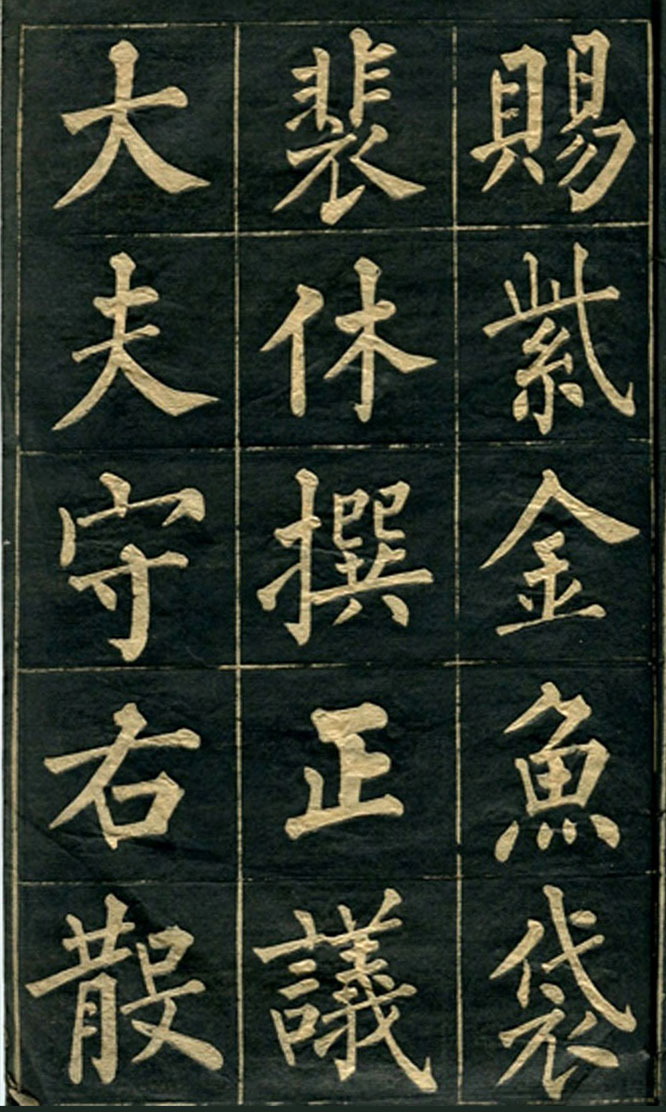 賜紫金魚袋
裴休撰正議
大夫守右散